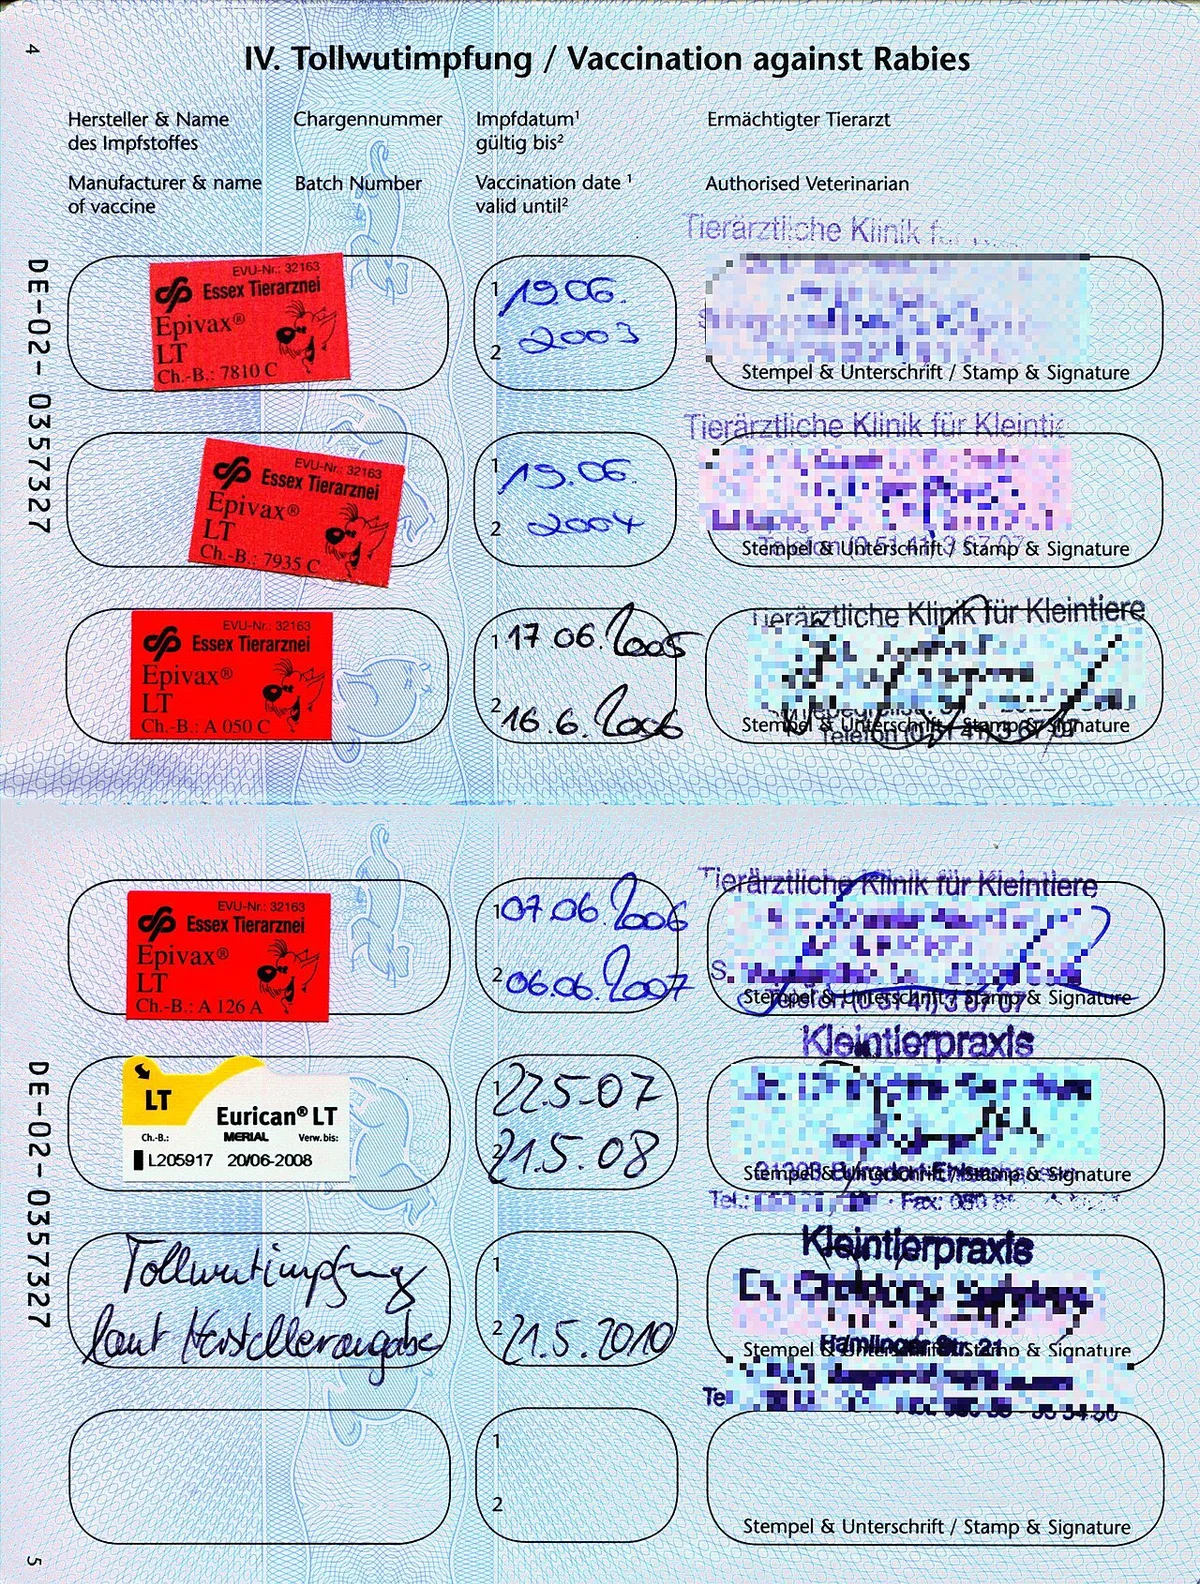 4
IV. Tollwutimpfung / Vaccination against Rabies
Hersteller & Name
des Impfstoffes
Chargennummer
Impfdatum¹
gültig bis²
Ermächtigter Tierarzt
Manufacturer & name
of vaccine
Batch Number
Vaccination date ¹
valid until²
Authorised Veterinarian
DE-02-0357327
EVU-Nr.: 32163
Essex Tierarznei
Epivax®
LT
Ch.-B.: 7810 C
1 19.06.
2 2003
Tierärztliche Klinik
Stempel & Unterschrift / Stamp & Signature
EVU-Nr.: 32163
Essex Tierarznei
Epivax®
LT
Ch.-B.: 7935 C
1 19.06.
2 2004
Tierärztliche Klinik für
Telefon (0 51 41) 3 67 07
Stempel & Unterschrift / Stamp & Signature
EVU-Nr.: 32163
Essex Tierarznei
Epivax®
LT
Ch.-B.: A 050 C
1 17.06.2005
2 16.6.2006
Tierärztliche Klinik für Kleintiere
Stempel & Unterschrift / Stamp & Signature
Telefon (0 51 41) 3 67 07
EVU-Nr.: 32163
Essex Tierarznei
Epivax®
LT
Ch.-B.: A 126 A
1 07.06.2006
2 06.06.2007
Tierärztliche Klinik für Kleintiere
Stempel & Unterschrift / Stamp & Signature
Telefon (0 51 41) 3 67 07
DE-02-0357327
LT
Eurican® LT
Ch.-B.: MERIAL Verw. bis:
L205917 20/06-2008
1 22.5.07
2 21.5.08
Kleintierpraxis
Stempel & Unterschrift / Stamp & Signature
Tel.: Fax:
Tollwutimpfung
laut Herstellerangabe
1
2 21.5.2010
Kleintierpraxis
Stempel & Unterschrift / Stamp & Signature
1
2
Stempel & Unterschrift / Stamp & Signature
5